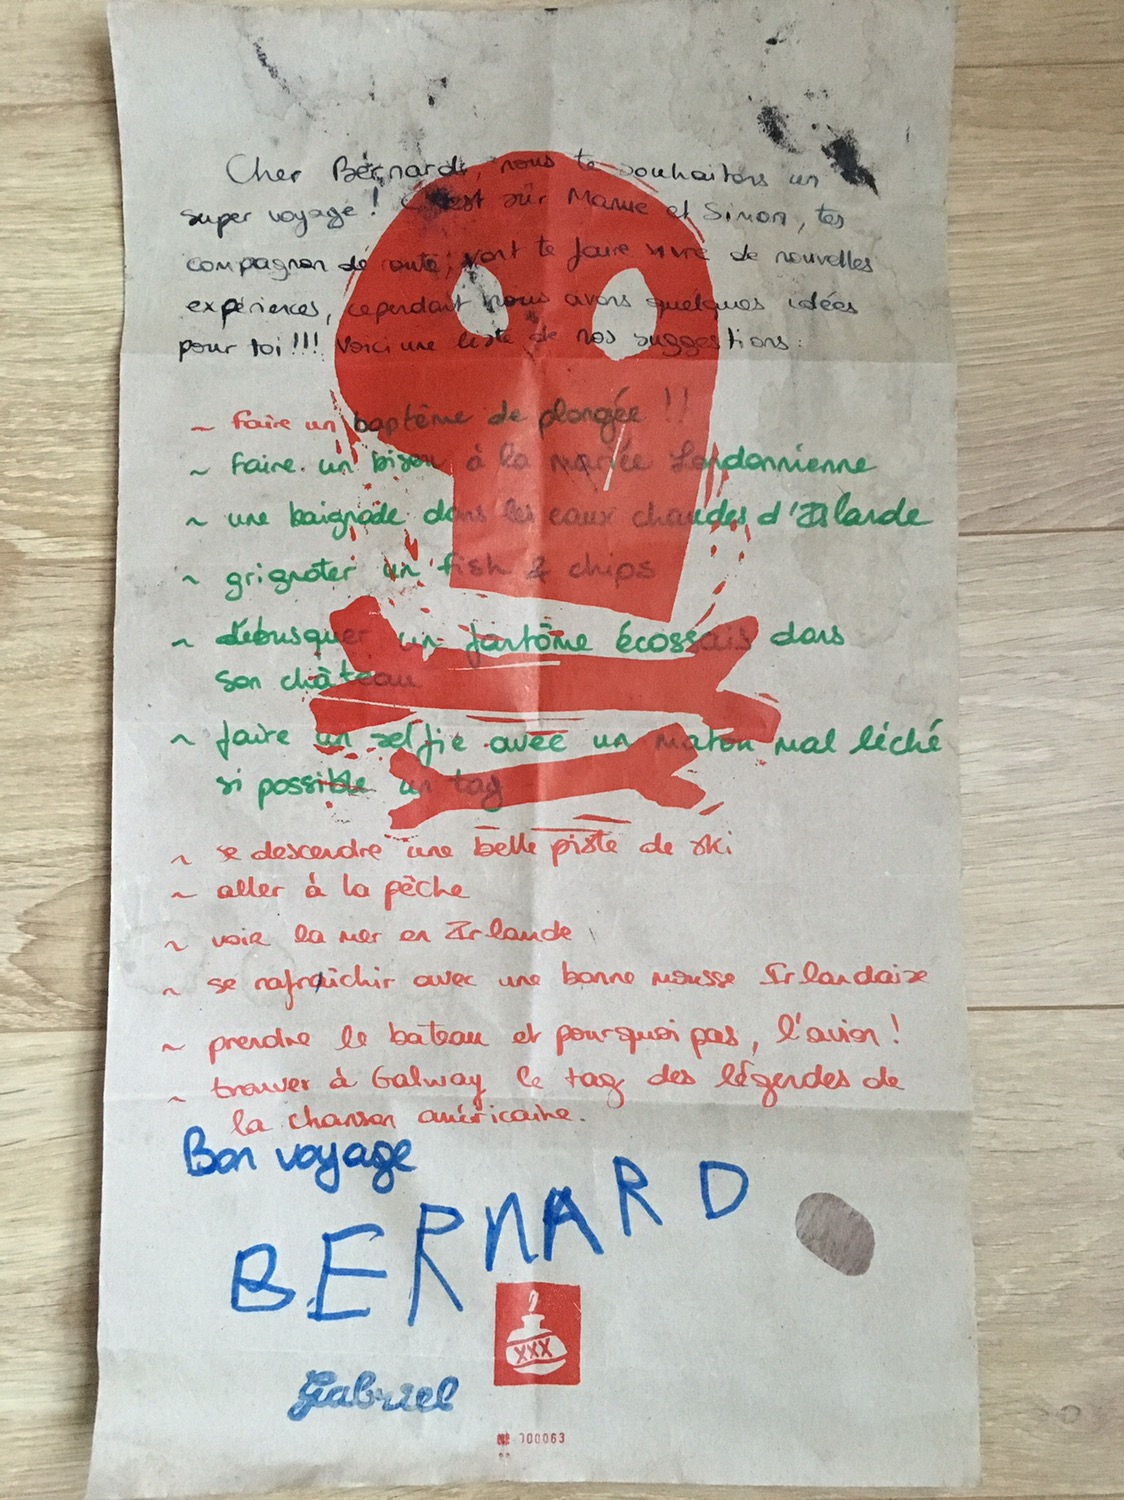 Cher Bernard, nous te souhaitons un
super voyage ! C'est sûr Manue et Simon, tes
compagnon de route, vont te faire vivre de nouvelles
expériences, cependant nous avons quelques idées
pour toi !!! Voici une liste de nos suggestions :
~ faire un baptême de plongée !!
~ faire un bisou à la mariée Londonnienne
~ une baignade dans les eaux chaudes d'Islande
~ grignoter un fish & chips
~ débusquer un fantôme écossais dans
son château
~ faire un selfie avec un maton mal léché
si possible un tag
~ se descendre une belle piste de ski
~ aller à la pêche
~ voir la mer en Irlande
~ se rafraîchir avec une bonne mousse Irlandaise
~ prendre le bateau et pourquoi pas, l'avion !
~ trouver à Galway le tag des légendes de
la chanson américaine.
Bon voyage
BERNARD
XXX
Gabriel
700063